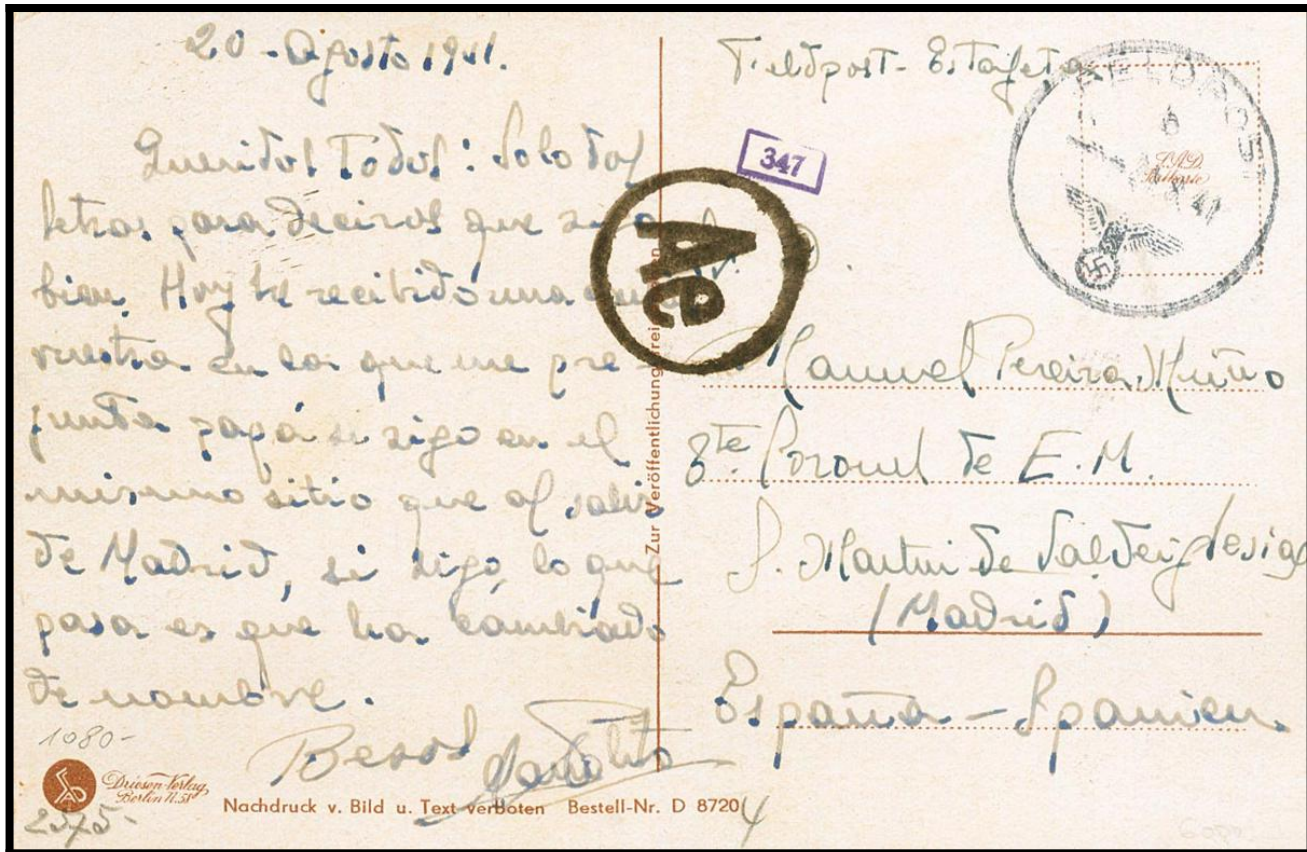 20 - Agosto 1941.
Queridos Todos: Solo dos
letras para deciros que sigo
bien. Hoy he recibido una
vuestra en la que me pre-
gunta papá si sigo en el
mismo sitio que al salir
de Madrid, si sigo, lo que
pasa es que ha cambiado
de nombre.
Besos
1080-
2575-
Driesen-Verlag
Berlin N.58
Nachdruck v. Bild u. Text verboten Bestell-Nr. D 8720
Zur Veröffentlichung
Ae
347
Feldpost - Estafeta
FELDPOST
41
Sr. D.
Manuel Pereira Muiño
Coronel de E.M.
S. Martin de Valdeiglesias
(Madrid)
España - Spanien